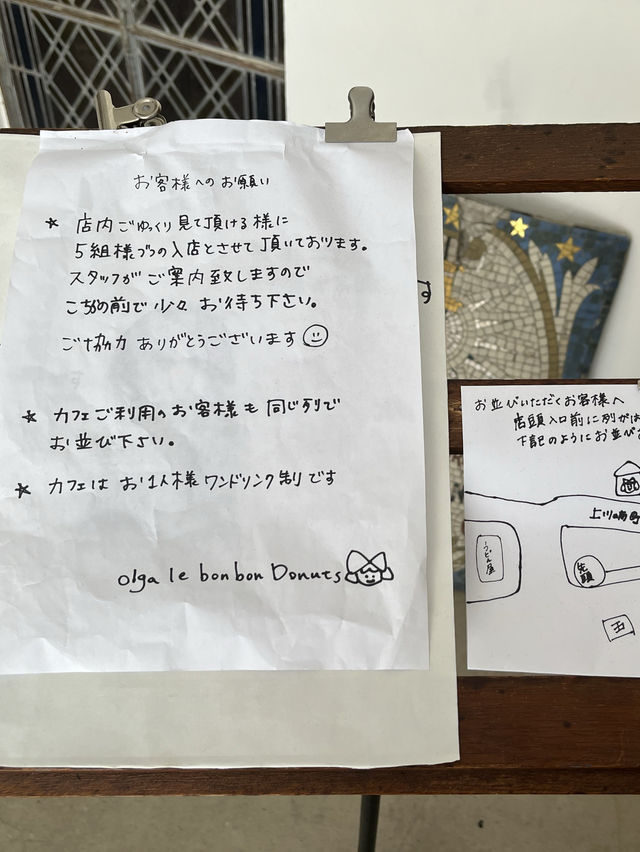 お客様へのお願い
* 店内ごゆっくり見て頂ける様に
5組様づつの入店とさせて頂いております。
スタッフがご案内致しますので
こちらの前で少々お待ち下さい。
ご協力ありがとうございます
* カフェご利用のお客様も同じ列で
お並び下さい。
* カフェはお1人様ワンドリンク制です
olga le bonbon Donuts
す
お並びいただくお客様へ
店頭入口前に列が
下記のようにお並び
うどん屋
先頭